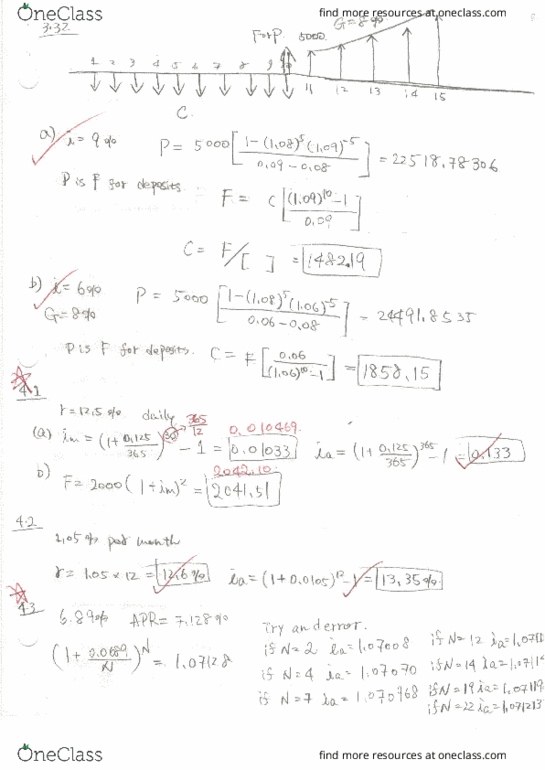 OneClass
find more resources at oneclass.com
3.32
F or P 5000 G=8%
1 2 3 4 5 6 7 8 9 11 12 13 14 15
C.
a) i = 9% P = 5000 [1-(1.08)^5 (1.09)^-5 / 0.09-0.08] = 22518.78306
P is F for deposits
F = C [(1.09)^10 -1 / 0.09]
C = F/[ ] = 1482.19
b) i = 6% P = 5000 [1-(1.08)^5 (1.06)^-5 / 0.06-0.08] = 24491.8535
G=8%
P is F for deposits. C = F [0.06 / (1.06)^10 -1] = 1858.15
4.1
r=12.5% daily 365/12 0.010469
(a) im = (1+ 0.125/365)^30 - 1 = 0.01033 ia = (1+ 0.125/365)^365 - 1 = 0.133
2042.10
b) F = 2000 (1+im)^2 = 2041.51
4.2
1.05% per month
r = 1.05 × 12 = 12.6% ia = (1+0.0105)^12 -1 = 13.35%
4.3
6.89% APR = 7.128%
Try and error.
(1+ 0.0689/N)^N = 1.07128
if N=2 ia=1.07008 if N=12 ia=1.0711
if N=4 ia=1.07070 if N=14 ia=1.0711
if N=7 ia=1.070968 if N=19 ia=1.07119
if N=22 ia=1.07121
OneClass
find more resources at oneclass.com